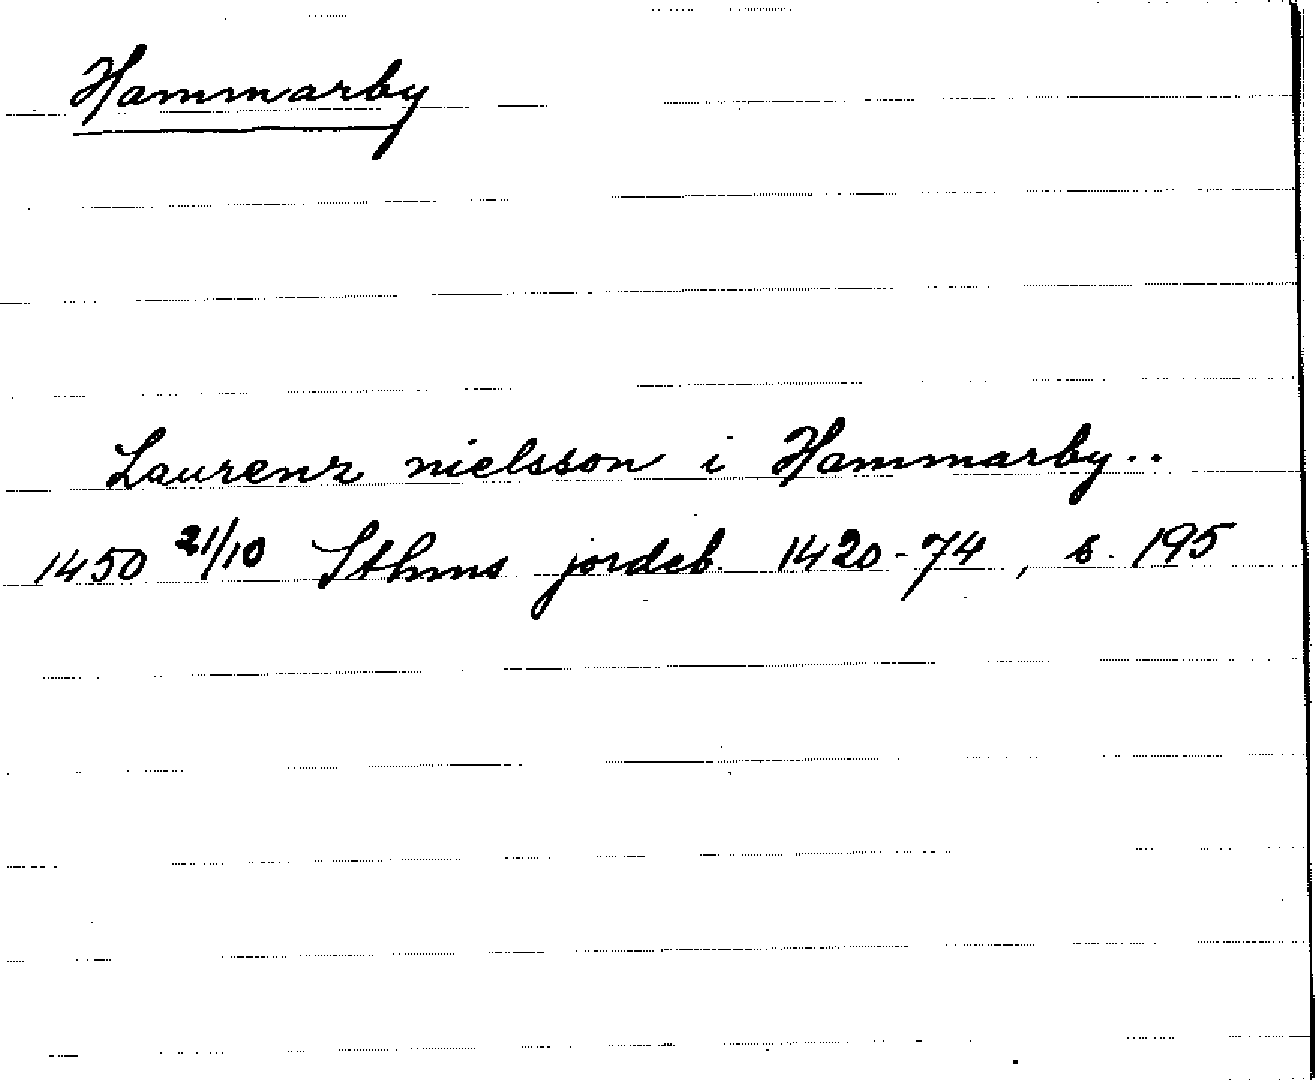 Hammarby
Laurenz nielsson i Hammarby..
1450 21/10 Sthms jordeb. 1420-74, s. 195